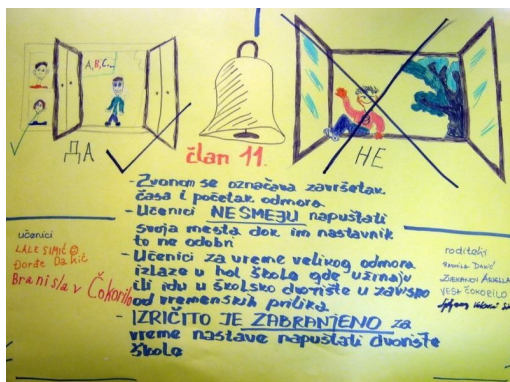 A,B,C...
ДА
član 11.
НЕ
- Zvonom se označava završetak
časa i početak odmora
- Učenici NE SMEJU napuštati
svoja mesta dok im nastavnik
to ne odobri
- Učenici za vreme velikog odmora
izlaze u hol škole gde užinaju
ili idu u školsko dvorište u zavisno
od vremenskih prilika
- IZRIČITO JE ZABRANJENO za
vreme nastave napuštati dvorište
škole
učenici
LALE SIMIĆ
Đorđe Dakić
Branislav Čokorilo
roditelji
ČOKORILO